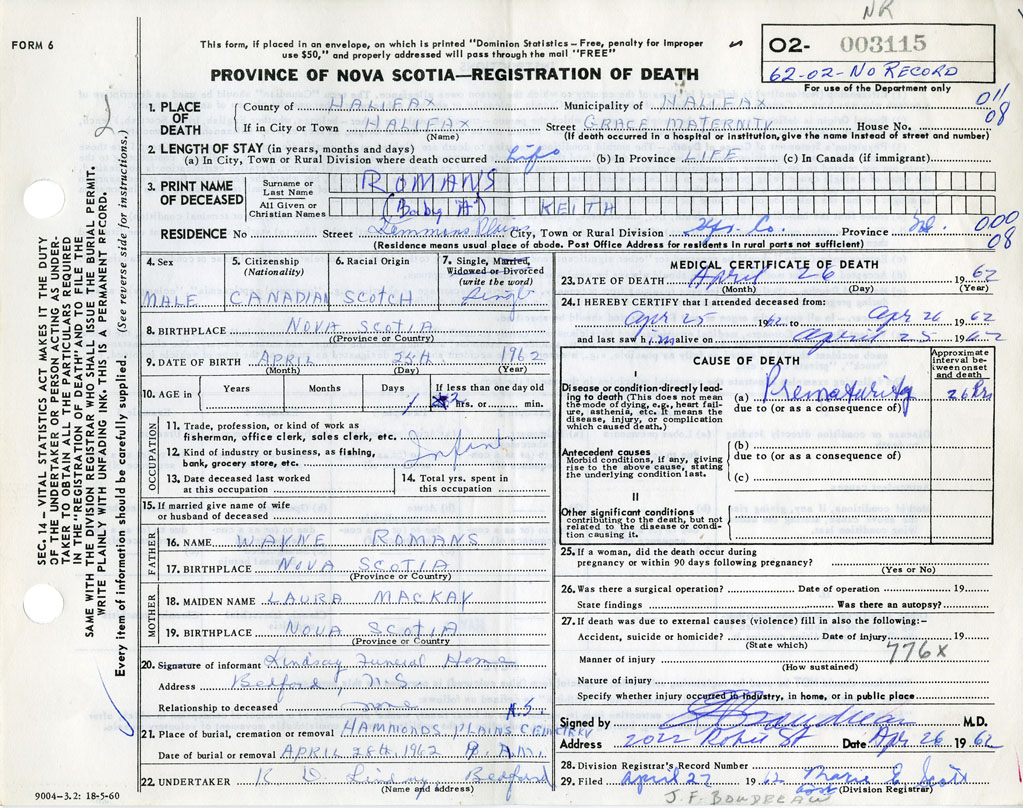 NR
FORM 6
This form, if placed in an envelope, on which is printed "Dominion Statistics – Free, penalty for improper
use $50," and properly addressed will pass through the mail "FREE"
O2- 003115
62-02-NO RECORD
For use of the Department only
PROVINCE OF NOVA SCOTIA—REGISTRATION OF DEATH
011
08
1. PLACE OF DEATH
County of HALIFAX Municipality of HALIFAX
If in City or Town HALIFAX Street GRACE MATERNITY House No.
(Name) (If death occurred in a hospital or institution, give the name instead of street and number)
2. LENGTH OF STAY (in years, months and days)
(a) In City, Town or Rural Division where death occurred Life (b) In Province LIFE (c) In Canada (if immigrant)
3. PRINT NAME OF DECEASED
Surname or Last Name ROMANS
All Given or Christian Names (Baby "A") KEITH
RESIDENCE No Street Plains City, Town or Rural Division Hfx. Co. Province
000
08
(Residence means usual place of abode. Post Office Address for residents in rural parts not sufficient)
4. Sex
MALE
5. Citizenship
(Nationality)
CANADIAN
6. Racial Origin
SCOTCH
7. Single, Married,
Widowed or Divorced
(write the word)
Single
8. BIRTHPLACE NOVA SCOTIA
(Province or Country)
9. DATE OF BIRTH APRIL 25th 1962
(Month) (Day) (Year)
10. AGE in Years Months Days If less than one day old
1 hrs. or min.
OCCUPATION
11. Trade, profession, or kind of work as
fisherman, office clerk, sales clerk, etc.
Infant
12. Kind of industry or business, as fishing,
bank, grocery store, etc.
13. Date deceased last worked
at this occupation
14. Total yrs. spent in
this occupation
15. If married give name of wife
or husband of deceased
FATHER
16. NAME WAYNE ROMANS
17. BIRTHPLACE NOVA SCOTIA
(Province or Country)
MOTHER
18. MAIDEN NAME LAURA MACKAY
19. BIRTHPLACE NOVA SCOTIA
(Province or Country)
20. Signature of informant Lindsay Funeral Home
Address Bedford, N-S
Relationship to deceased none
N.S.
21. Place of burial, cremation or removal HAMMONDS PLAINS CEMETERY
Date of burial or removal APRIL 28th, 1962 A.M.
22. UNDERTAKER K D. Lindsay Bedford
(Name and address)
9004-3.2: 18-5-60
MEDICAL CERTIFICATE OF DEATH
23. DATE OF DEATH April 26 1962
(Month) (Day) (Year)
24. I HEREBY CERTIFY that I attended deceased from:
Apr 25 1962 to Apr 26 1962
and last saw him alive on April 25 1962
CAUSE OF DEATH
Approximate
interval be-
tween onset
and death
I
Disease or condition directly lead-
ing to death (This does not mean
the mode of dying, e.g., heart fail-
ure, asthenia, etc. It means the
disease, injury, or complication
which caused death.)
(a) Prematurity 26 hrs
due to (or as a consequence of)
Antecedent causes
Morbid conditions, if any, giving
rise to the above cause, stating
the underlying condition last.
(b)
due to (or as a consequence of)
(c)
II
Other significant conditions
contributing to the death, but not
related to the disease or condi-
tion causing it.
25. If a woman, did the death occur during
pregnancy or within 90 days following pregnancy?
(Yes or No)
26. Was there a surgical operation? Date of operation 19
State findings Was there an autopsy?
27. If death was due to external causes (violence) fill in also the following:-
Accident, suicide or homicide? Date of injury 19
(State which)
776x
Manner of injury
(How sustained)
Nature of injury
Specify whether injury occurred in industry, in home, or in public place
Signed by Boudreau M.D.
Address 2022 Robie St Date Apr 26 1962
28. Division Registrar's Record Number
29. Filed April 27 1962 Marie E. Scott
(Division Registrar)
J. F. BOUDREAU
SEC. 14 – VITAL STATISTICS ACT MAKES IT THE DUTY
OF THE UNDERTAKER OR PERSON ACTING AS UNDER-
TAKER TO OBTAIN ALL THE PARTICULARS REQUIRED
IN THE "REGISTRATION OF DEATH" AND TO FILE THE
SAME WITH THE DIVISION REGISTRAR WHO SHALL ISSUE THE BURIAL PERMIT.
WRITE PLAINLY WITH UNFADING INK. THIS IS A PERMANENT RECORD.
Every item of information should be carefully supplied. (See reverse side for instructions.)